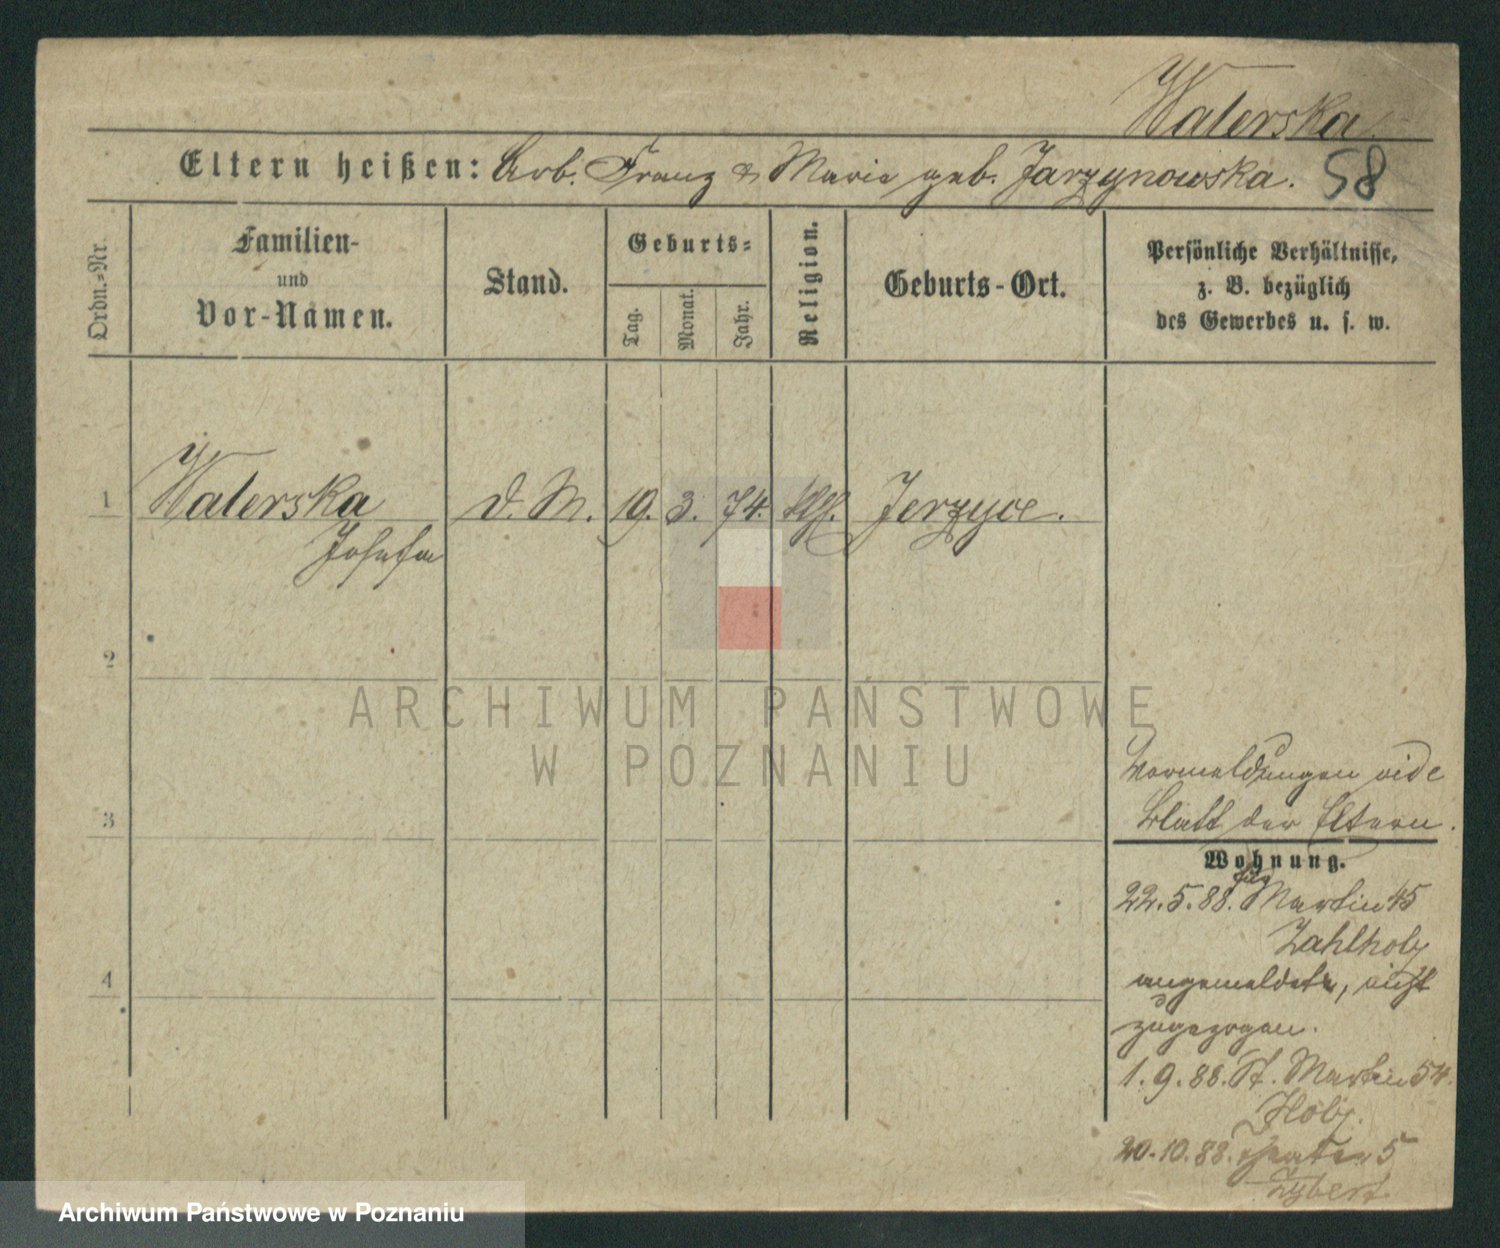 Walerska.
Eltern heißen: Arb. Franz & Marie geb. Jarzynowska. 58
Ordn.-Nr.
Familien-
und
Vor-Namen.
Stand.
Geburts-
Tag.
Monat.
Jahr.
Religion.
Geburts-Ort.
Persönliche Verhältnisse,
z. B. bezüglich
des Gewerbes u. s. w.
1 Walerska d. M. 19. 3. 74. kth. Jerzyce.
Josefa
2
ARCHIWUM PAŃSTWOWE
W POZNANIU
Vormeldungen vide
3 Blatt der Eltern.
Wohnung.
22.5.88. Martin 45
angemeldet, nicht
4
zugezogen.
1.9.88. St. Martin 54.
20.10.88. Theater 5
Archiwum Państwowe w Poznaniu